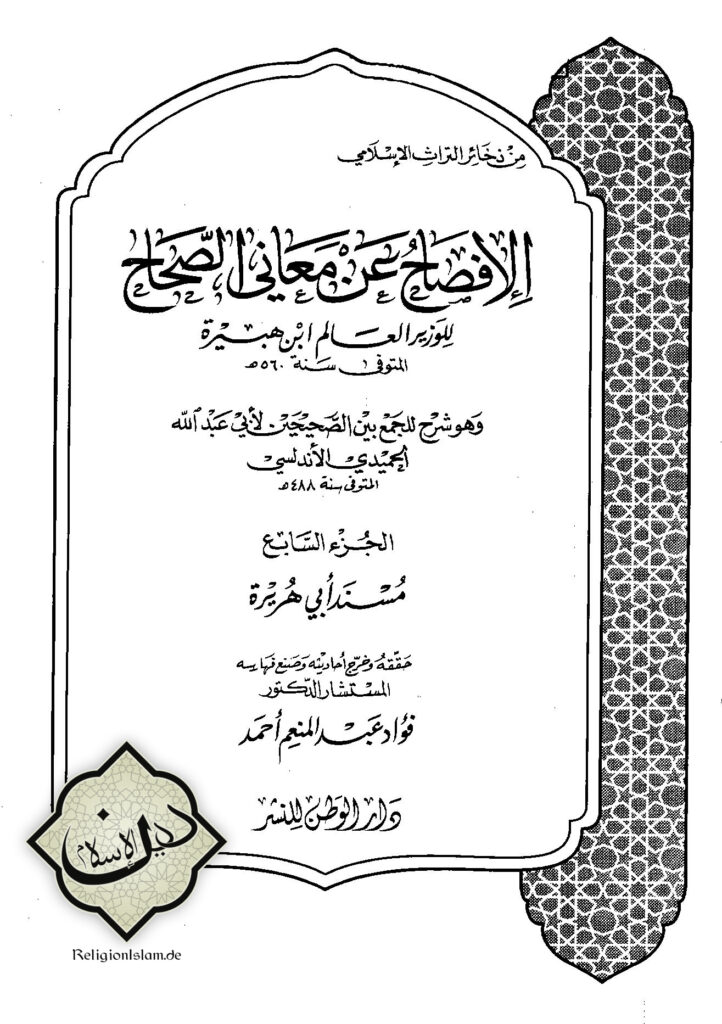 من ذخائر التراث الإسلامي
الإفصاح عن معاني الصحاح
للوزير العالم ابن هبيرة
المتوفى سنة ٥٦٠هـ
وهو شرح للجمع بين الصحيحين لأبي عبد الله
الحميدي الأندلسي
المتوفى سنة ٤٨٨هـ
الجزء السابع
مسند أبي هريرة
حققه وخرج أحاديثه وصنع فهارسه
المستشار الدكتور
فؤاد عبد المنعم أحمد
دار الوطن للنشر
دين الإسلام
ReligionIslam.de